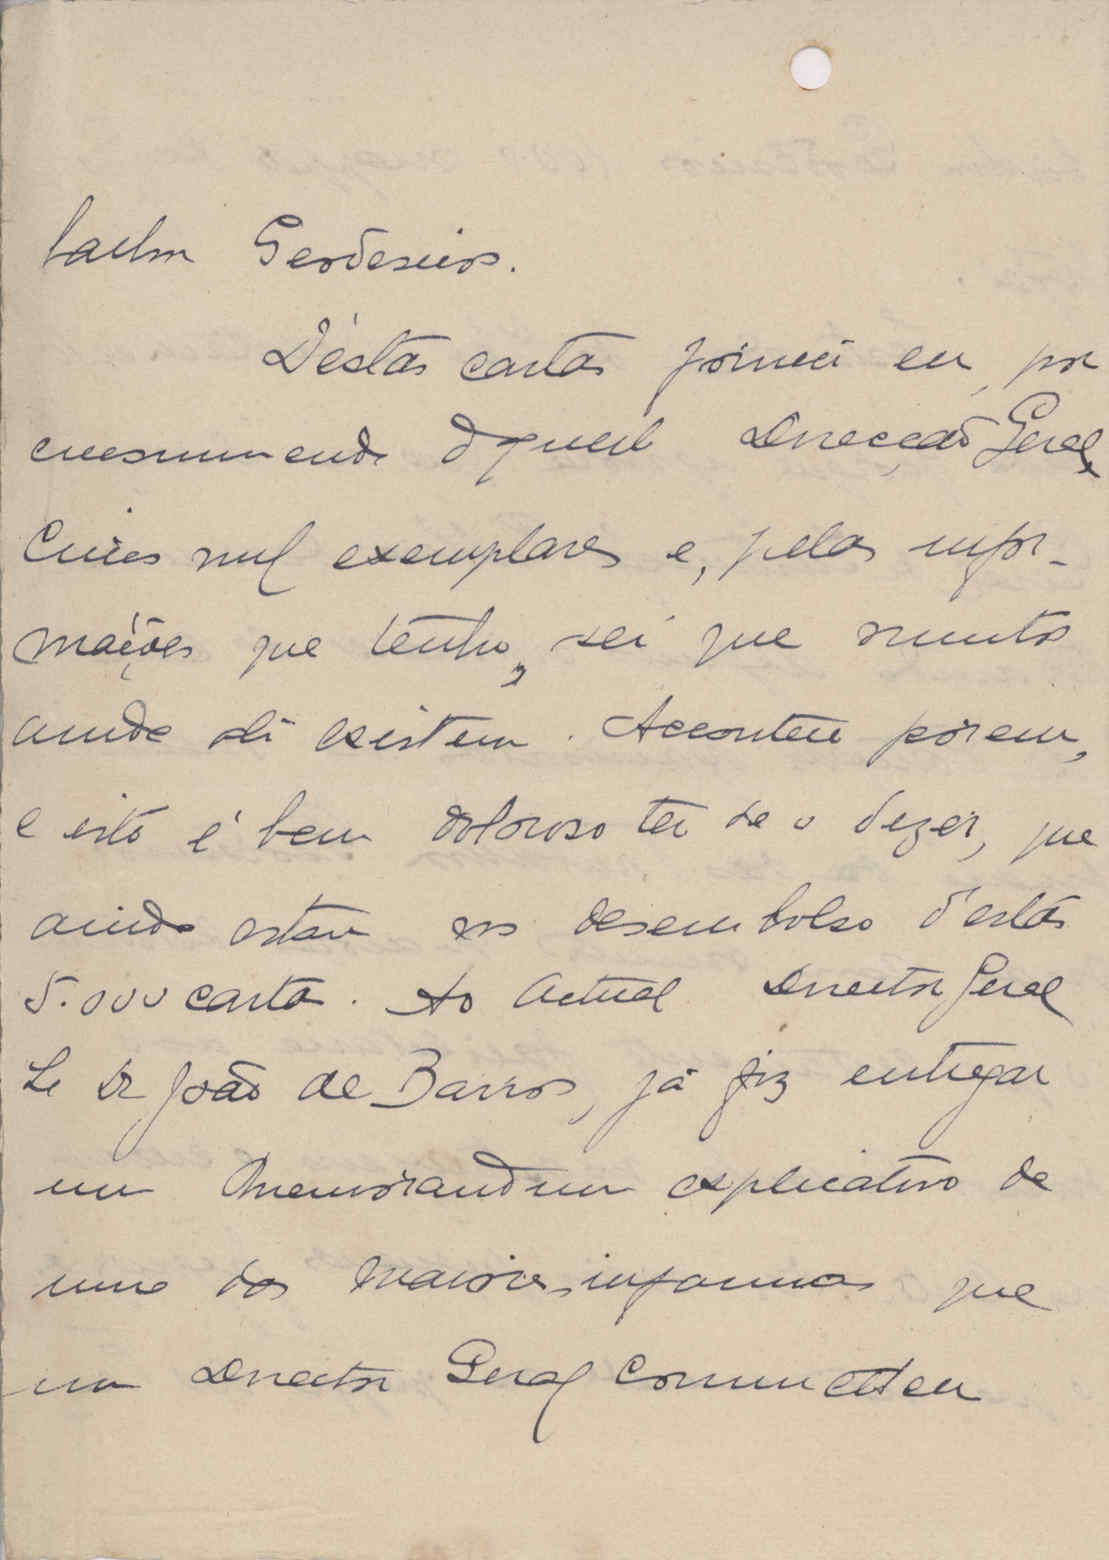 balhos Geodesicos.
D'estas cartas forneci eu, por
encommenda d'aquella Direcção Geral,
cinco mil exemplares e, pelas infor-
mações que tenho, sei que muitos
ainda ali existem. Accontece porem,
e isto é bem doloroso ter de o dizer, que
ainda estou no desembolso d'estas
5.000 cartas. Ao actual Director Geral
Sr Dr João de Barros, já fiz entregar
um Memorandum explicativo de
uma das maiores infamias que
um Director Geral commetteu